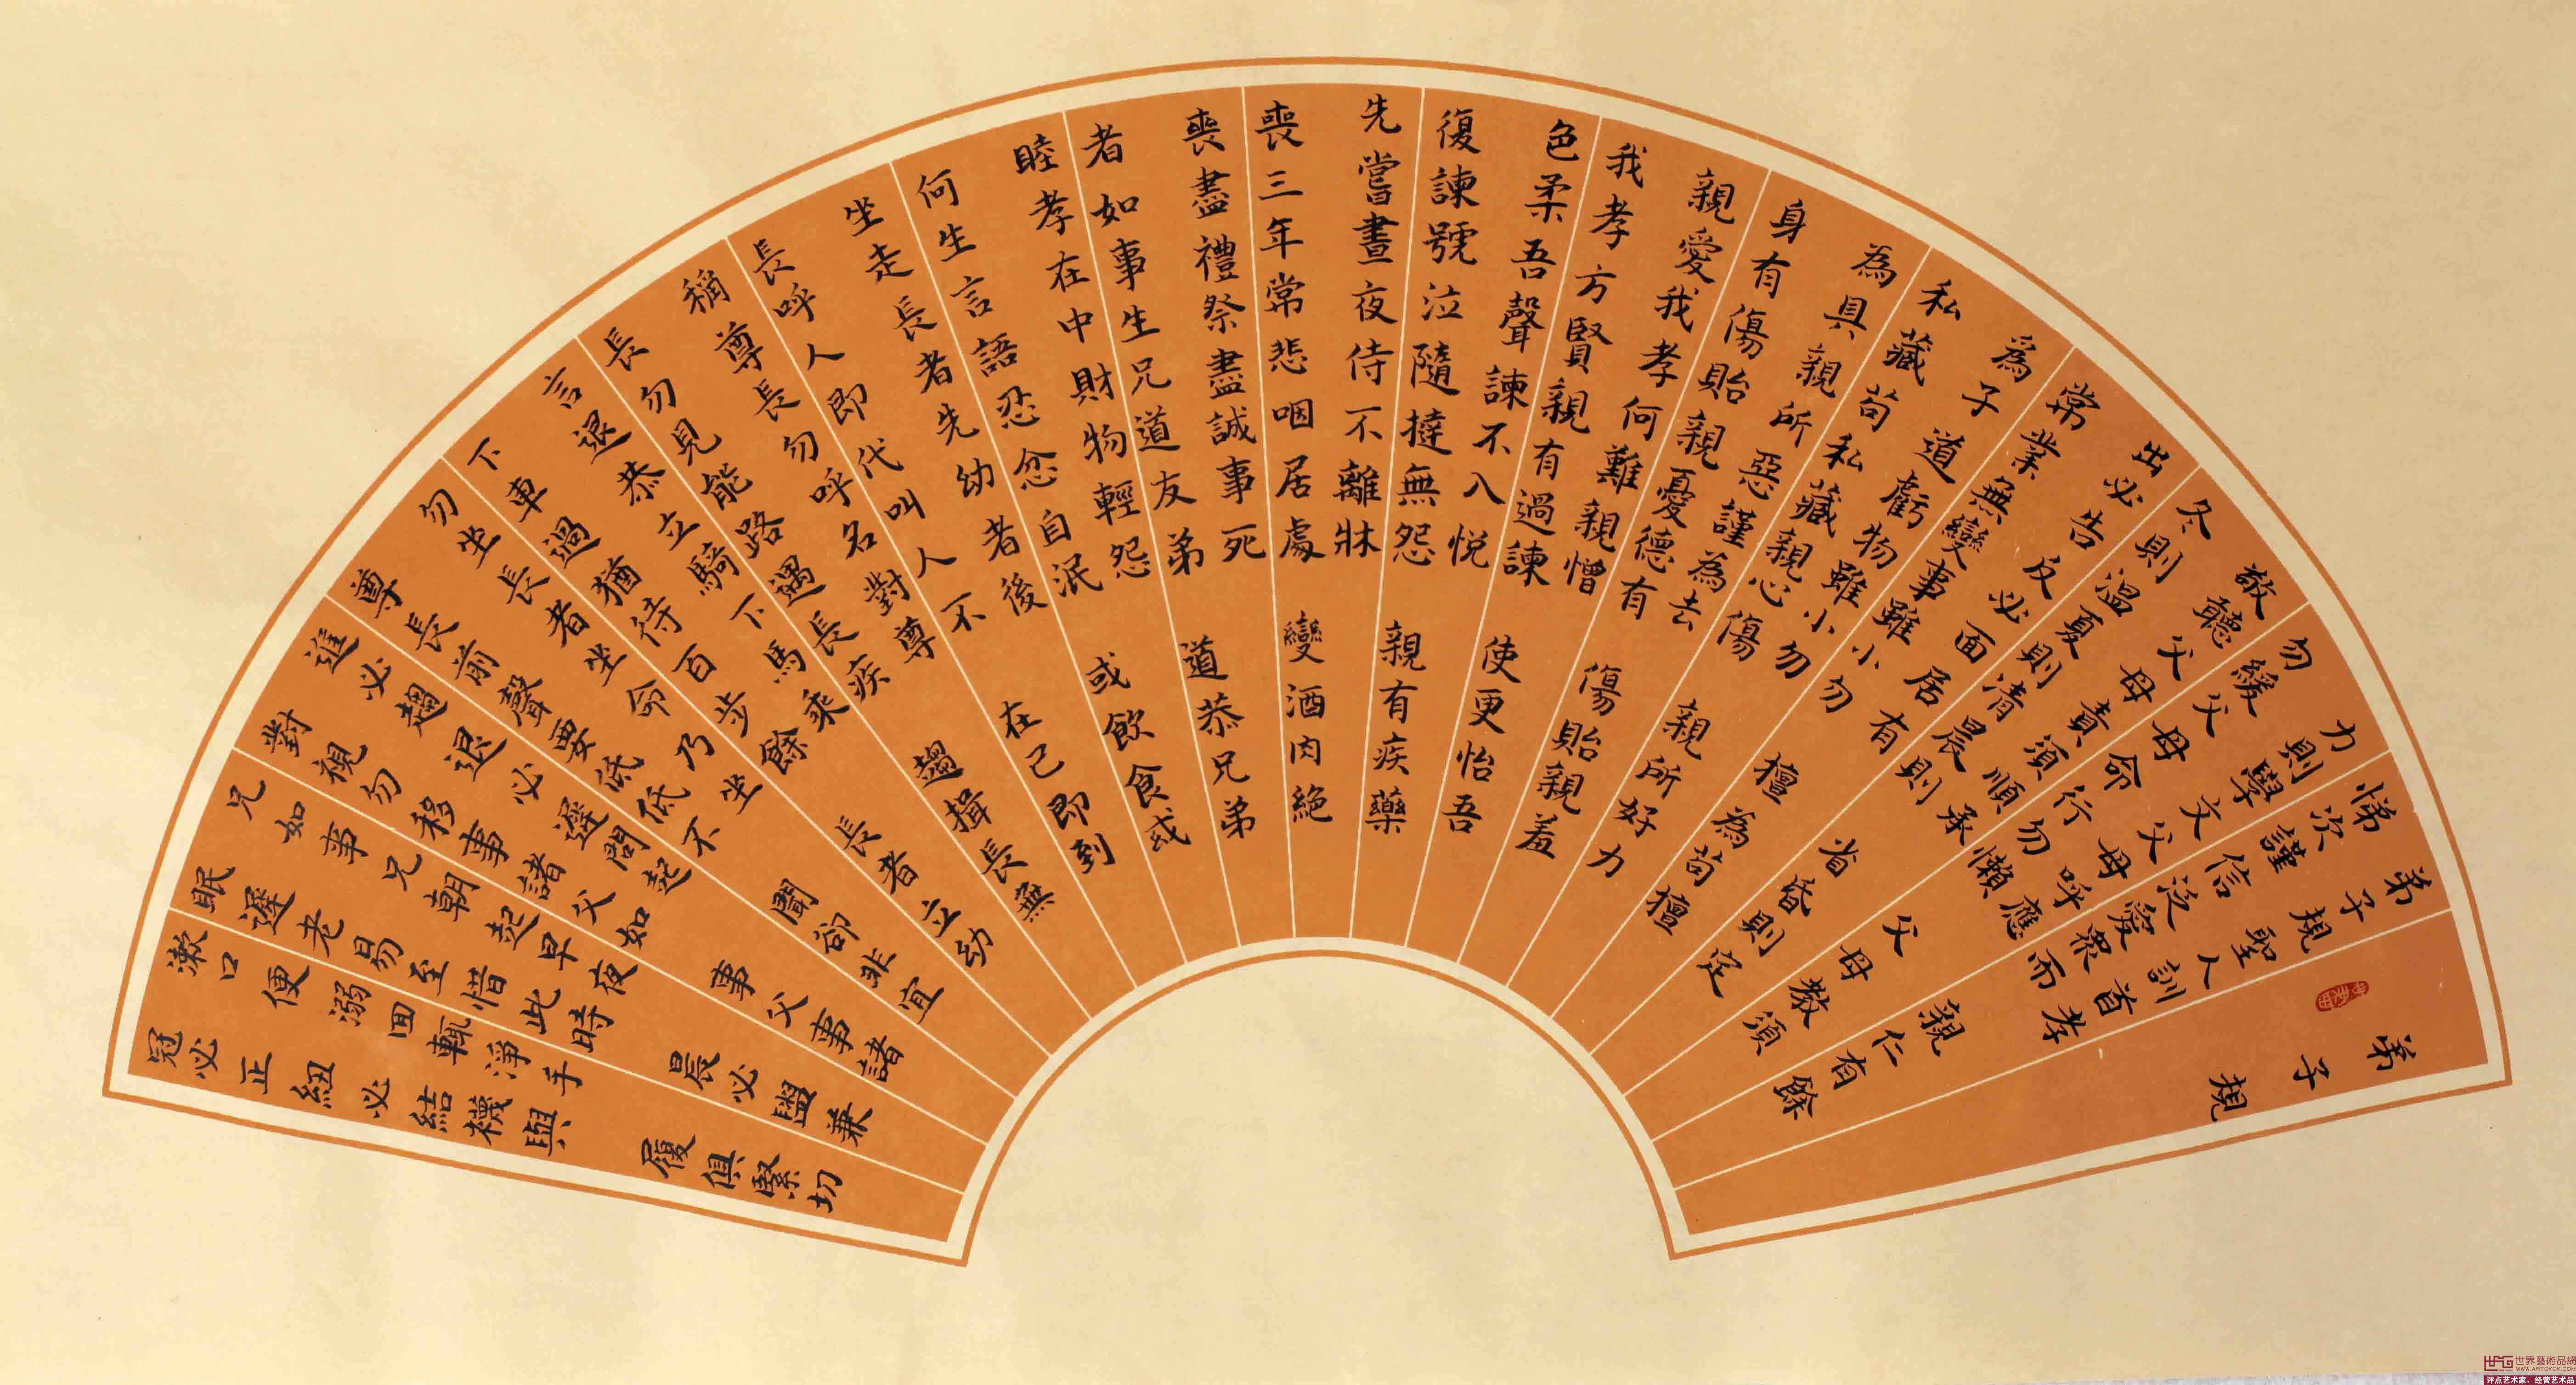 弟子規
弟子規聖人訓首孝
悌次謹信泛愛眾而
親仁有餘
力則學文父母呼應
勿緩父母命行勿懶
父母教須
敬聽父母責須順承
冬則溫夏則清晨則
省昏則定
出必告反必面居有
常業無變事雖小勿
擅為苟擅
為子道虧物雖小勿
私藏苟私藏親心傷
親所好力
為具親所惡謹為去
身有傷貽親憂德有
傷貽親羞
親愛我孝何難親憎
我孝方賢親有過諫
使更怡吾
色柔吾聲諫不入悦
復諫號泣隨撻無怨
親有疾藥
先嘗晝夜侍不離牀
喪三年常悲咽居處
變酒肉絕
喪盡禮祭盡誠事死
者如事生兄道友弟
道恭兄弟
睦孝在中財物輕怨
何生言語忍忿自泯
或飲食或
坐走長者先幼者後
長呼人即代叫人不
在己即到
稱尊長勿呼名對尊
長勿見能路遇長疾
趨揖長無
言退恭立騎下馬乘
下車過猶待百步餘
長者立幼
勿坐長者坐命乃坐
尊長前聲要低低不
聞卻非宜
進必趨退必遲問起
對視勿移事諸父如
事父事諸
兄如事兄朝起早夜
眠遲老易至惜此時
晨必盥兼
漱口便溺回輒淨手
冠必正紐必結襪與
履俱緊切
世界藝術品網
WWW.ARTOKOK.COM
评点艺术家，经营艺术品